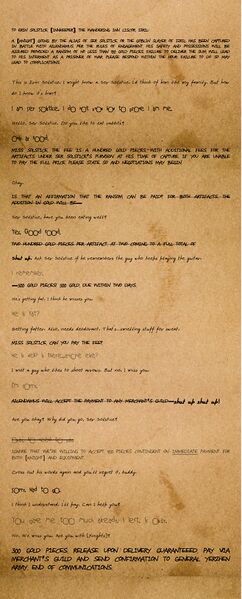 TO ERIN SOLSTICE [INNKEEPER] THE WANDERING INN LISCOR, IZRIL:
A [KNIGHT] GOING BY THE ALIAS OF SER SOLSTICE OR THE GOBLIN SLAYER OF IZRIL HAS BEEN CAPTURED
IN BATTLE WITH AILENDAMUS. PER THE RULES OF ENGAGEMENT HIS SAFETY AND POSSESSIONS WILL BE
ASSURED PROVIDED A RANSOM OF NO LESS THAN GOLD PIECES. FAILURE TO DELIVER THE SUM WILL LEAD
TO HIS INTERMENT AS A PRISONER OF WAR. PLEASE RESPOND WITHIN THE HOUR. FAILURE TO DO SO MAY
LEAD TO COMPLICATIONS.
This is Erin Solstice. I might know a Ser Solstice. I'd think of him as my family. But how
do I know it's him?
I am Ser Solstice.
Hello, Ser Solstice. Do you like to eat rabbits?
MISS SOLSTICE, THE FEE IS A HUNDRED GOLD PIECES WITH ADDITIONAL FEES FOR THE
ARTIFACTS UNDER SER SOLSTICE'S PURVIEW AT HIS TIME OF CAPTURE. IF YOU ARE UNABLE
TO PAY THE FULL PRICE PLEASE STATE SO AND NEGOTIATIONS MAY BEGIN.
Okay.
IS THAT AN AFFIRMATION THAT THE RANSOM CAN BE PAID? FOR BOTH ARTIFACTS, THE
ADDITION IN GOLD WILL BE—
Ser Solstice, have you been eating well?
Yes. Good food.
TWO HUNDRED GOLD PIECES PER ARTIFACT, AT TWO, COMING TO A FULL TOTAL OF
Shut up. Ask Ser Solstice if he remembers the guy who keeps playing the guitar.
I remember.
—500 GOLD PIECES! 500 GOLD, DUE WITHIN TWO DAYS.
He's getting fat. I think he misses you.
He is fat?
Getting fatter. Also, needs deodorant. That's smelling stuff for sweat.
MISS SOLSTICE, CAN YOU PAY THE FEE?
I met a guy who likes to shoot arrows. But no, I miss you.
I'm sorry.
AILENDAMUS WILL ACCEPT THE PAYMENT TO ANY MERCHANT'S GUILD—shut up shut up!
Are you okay? Why did you go, Ser Solstice?
IGNORE THAT. WE'RE WILLING TO ACCEPT 400 PIECES CONTINGENT ON IMMEDIATE PAYMENT FOR
BOTH [KNIGHT] AND EQUIPMENT.
Cross out his words again and you'll regret it, buddy.
Sorry. Had to go.
I think I understand. I'll pay. Can I help you?
No. We miss you. Are you with [Knights]?
300 GOLD PIECES. RELEASE UPON DELIVERY GUARANTEED. PAY VIA
MERCHANT'S GUILD AND SEND CONFIRMATION TO GENERAL YERSHEN
ARMY. END OF COMMUNICATIONS.